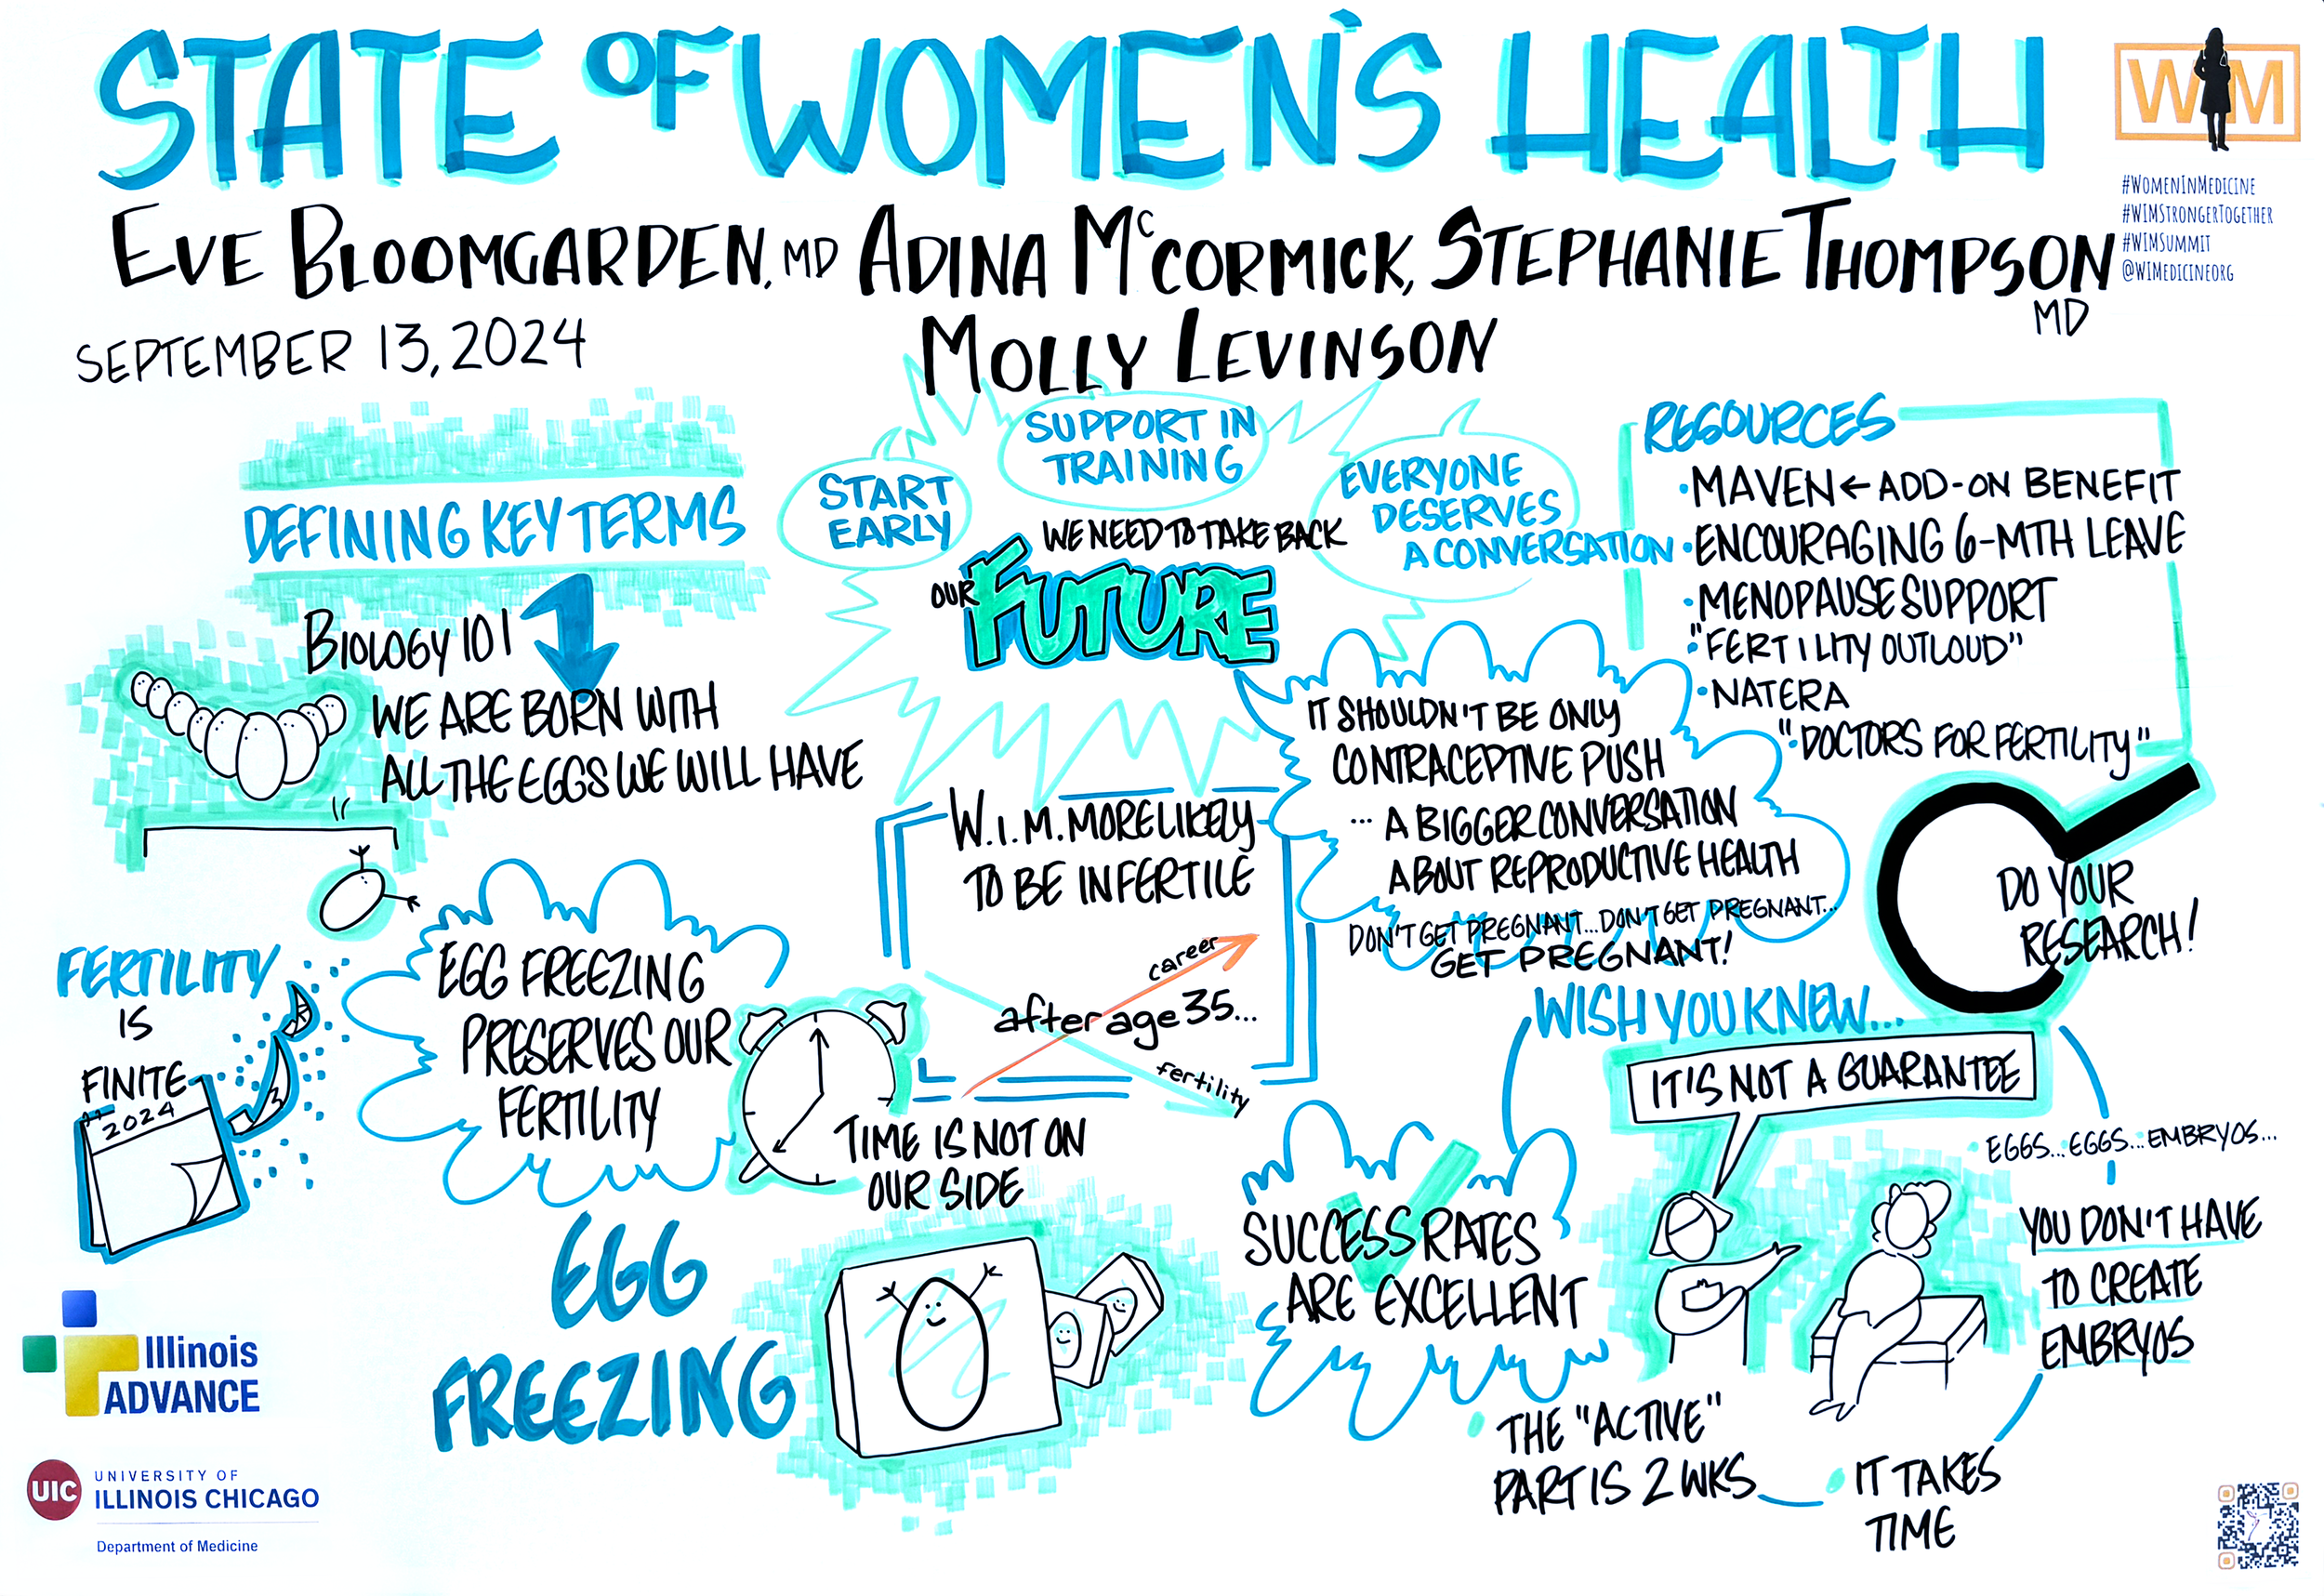 STATE OF WOMEN'S HEALTH
WIM
#WOMENINMEDICINE
#WIMSTRONGERTOGETHER
#WIMSUMMIT
@WIMEDICINEORG
EVE BLOOMGARDEN, MD ADINA McCORMICK, STEPHANIE THOMPSON MD
MOLLY LEVINSON
SEPTEMBER 13, 2024
DEFINING KEY TERMS
BIOLOGY 101
WE ARE BORN WITH
ALL THE EGGS WE WILL HAVE
FERTILITY
IS
FINITE
2024
EGG FREEZING
PRESERVES OUR
FERTILITY
TIME IS NOT ON
OUR SIDE
EGG
FREEZING
START
EARLY
SUPPORT IN
TRAINING
EVERYONE
DESERVES
A CONVERSATION
WE NEED TO TAKE BACK
OUR FUTURE
W.I.M. MORE LIKELY
TO BE INFERTILE
career
after age 35...
fertility
IT SHOULDN'T BE ONLY
CONTRACEPTIVE PUSH
... A BIGGER CONVERSATION
ABOUT REPRODUCTIVE HEALTH
DON'T GET PREGNANT... DON'T GET PREGNANT...
GET PREGNANT!
RESOURCES
• MAVEN ← ADD-ON BENEFIT
• ENCOURAGING 6-MTH LEAVE
• MENOPAUSE SUPPORT
• "FERTILITY OUTLOUD"
• NATERA
• "DOCTORS FOR FERTILITY"
DO YOUR
RESEARCH!
WISH YOU KNEW...
IT'S NOT A GUARANTEE
• EGGS... EGGS... EMBRYOS...
YOU DON'T HAVE
TO CREATE
EMBRYOS
SUCCESS RATES
ARE EXCELLENT
• THE "ACTIVE"
PART IS 2 WKS
• IT TAKES
TIME
Illinois
ADVANCE
UIC
UNIVERSITY OF
ILLINOIS CHICAGO
Department of Medicine